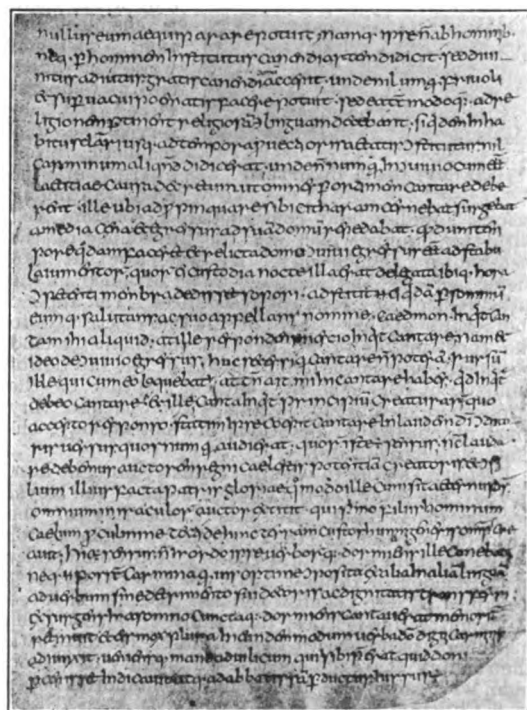 nullus eum aequiparare potuit namq; ipse n ab hominib;
neq; p hominem institutus canendi artem didicit sed diuini
tus adiutus gratis canendi donum accepit unde nil umq; friuoli
et superuacui poematis facere potuit sed ea tm modo q; ad re
ligionem ptinent religiosa linguam decebant siq; dem in ha
bitu saeculari usq; ad tempora puectioris aetatis constitutus nil
carminum aliqndo didicerat unde nonnumq; in conuiuio cum esset
laetitiae causa decretum ut omnes p ordinem cantare debe
rent ille ubi adppinquare sibi citharam cernebat surgebat
a media cena et egressus ad suam domum repedabat qd dum tem
pore qdam faceret et relicta domo conuiuii egressus esset ad stabu
la iumentorum quorum ei custodia nocte illa erat delegata ibiq; hora
conpetenti membra dedisset sopori adstitit ei qdam p somnium
eumq; salutans ac suo appellans nomine caedmon inqt can
ta mihi aliquid at ille respondens nescio inqt cantare nam et
ideo de conuiuio egressus huc secessi quia cantare n poteram rursum
ille qui cum eo loquebatur attn ait mihi cantare habes qd inqt
debeo cantare et ille canta inqt principium creaturarum quo
accepto responso statim ipse coepit cantare in laudem di condito
ris uersus quos numquam audierat quorum iste est sensus nc lauda
re debemus auctorem regni caelestis potentiam creatoris et consi
lium illius facta patris gloriae qmodo ille cum sit aeternus ds
omnium miraculorum auctor extitit qui primo filiis hominum
caelum p culmine tecti dehinc terram custos humani generis omps cre
auit hic est sensus n autem ordo ipse uerborum q dormiens ille canebat
neq; n possunt carmina quamuis optime conposita ex alia in aliam linguam
ad uerbum sine detrimento sui decoris ac dignitatis transferri
exsurgens a somno cuncta q; dormiens cantauerat memoriter
retinuit et eis mox plura in eundem modum uerba do digni carminis
adiunxit ueniensq; mane ad uilicum qui sibi perat quid doni
pcepisset indicauit atq; ad abbatissam pductus iussus